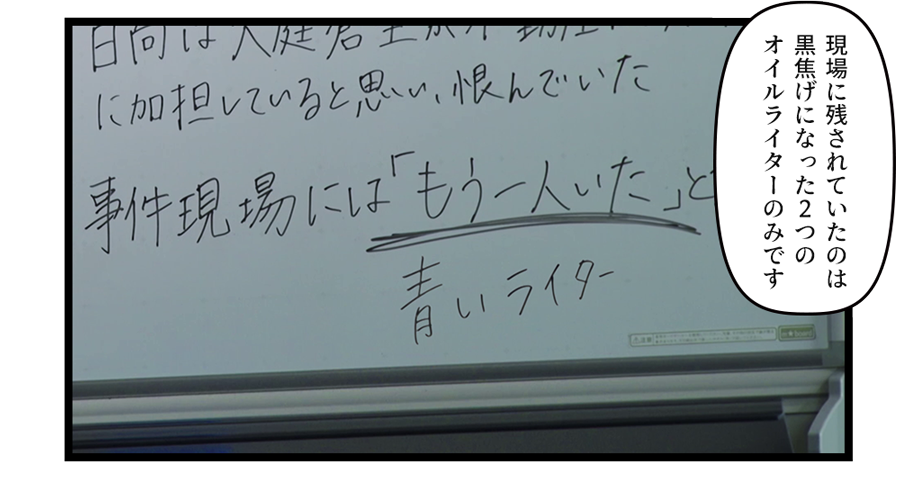 現場に残されていたのは
黒焦げになった２つの
オイルライターのみです
に加担していると思い、恨んでいた
事件現場には「もう一人いた」と
青いライター